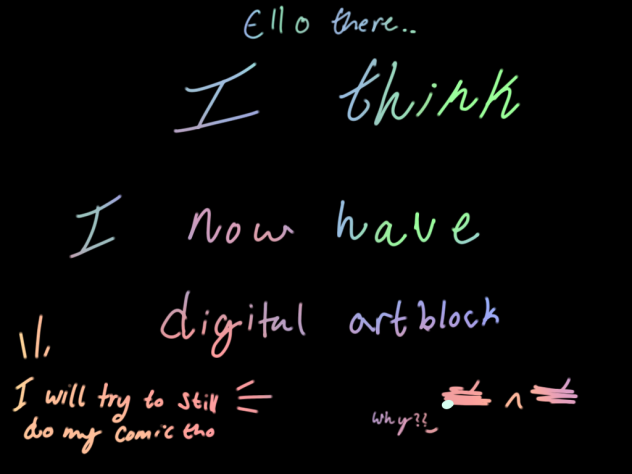 Ello there..
I think
I now have
digital artblock
I will try to still
do my comic tho
why??